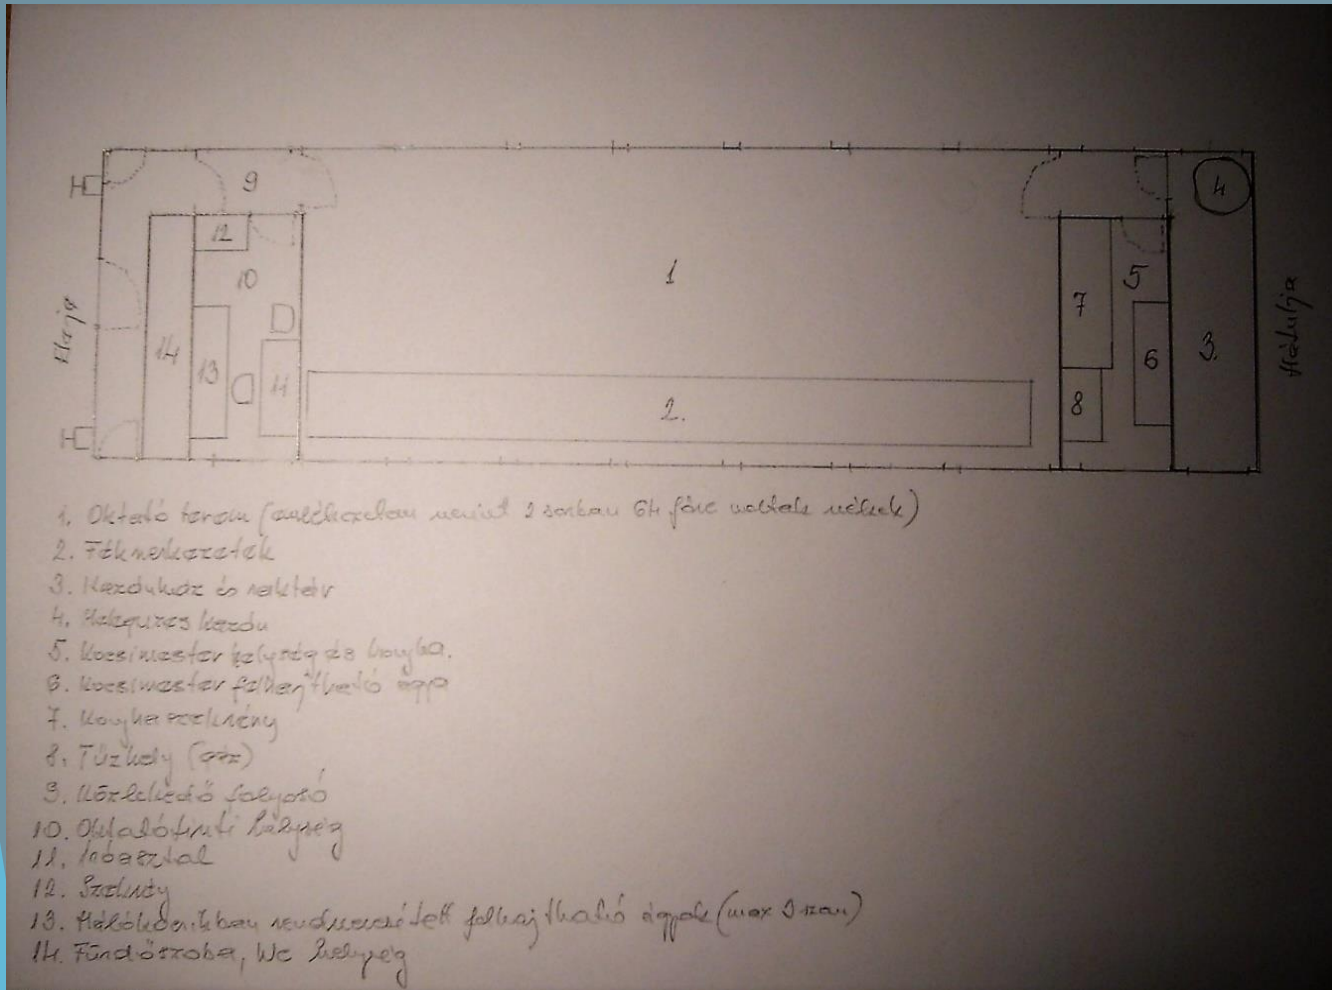 9
4
12
10
1
5
7
14
13
11
6
3.
8
2.
Eleje
Hátulja
1. Oktató terem (emlékezetem szerint 2 sorban 64 főre voltak székek)
2. Fékszerkezetek
3. Kazánház és raktár
4. kazán
5. Kocsimester helység és konyha.
6. Kocsimester felhajtható ágya
7. Konyhaszekrény
8. Tűzhely (gáz)
9. Közlekedő folyosó
10. Oktatótiszti helység
11. Íróasztal
12. Szekrény
13. Hálókocsikban rendszeresített felhajtható ágyak (max 3 szem)
14. Fürdőszoba, Wc helység